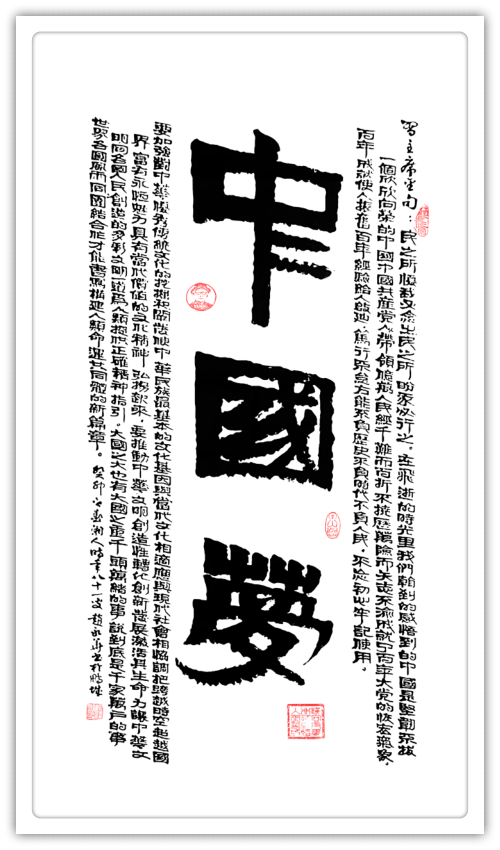 習主席金句：民之所憂我必念之民之所盼我必行之。在飛逝的時光里我們看到的感悟到的中國是堅韌不拔
一個欣欣向榮的中國中國共產黨人帶領億萬人民經千難而百折不撓歷萬險而矢志不渝成就了百年大黨的恢宏氣象，
百年成就使人振奮百年經驗給人啟迪，篤行不怠方能不負歷史不負時代不負人民，不忘初心牢記使用。
中國夢
要加強對中華優秀傳統文化的挖掘和闡發使中華民族最基本的文化基因與當代文化相適應與現代社會相協調把跨越時空超越國
界富有永恆魅力具有當代價值的文化精神弘揚起來，要推動中華文明創造性轉化創新發展激活其生命力讓中華文
明同各國人民創造的多彩文明道爲人類提供正確精神指引。大國之大也有大國之重千頭萬緒的事說到底是千家萬戶的事
世界各國風雨同團結合作才能書寫構建人類命運共同體的新篇章。癸卯之春湘人時年八十一歲趙書於